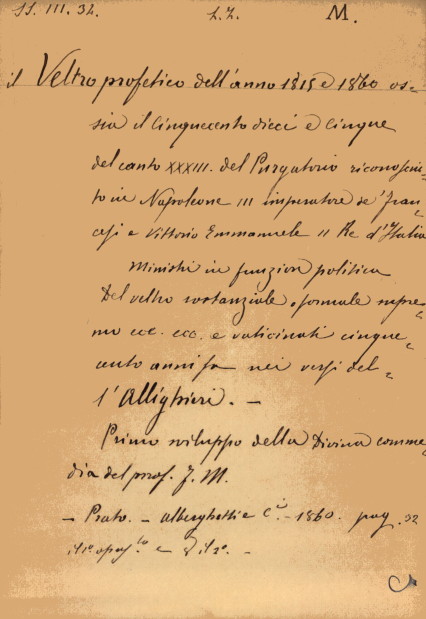 SS. III. 32. L.L. M.
il Veltro profetico dell'anno 1815 e 1860 os=
sia il Cinquecento dieci e cinque
del canto XXXIII. del Purgatorio riconosciu=
to in Napoleone III imperatore de' Fran=
cesi e Vittorio Emmanuele II Re d'Italia
Ministri in funzion politica
Del veltro sostanziale, formale supre=
mo ecc. ecc. e vaticinati cinque=
cento anni fa nei versi del=
l'Allighieri. —
Primo sviluppo della Divina comme=
dia del prof. J. M.
— Prato. — Alberghetti e C.i — 1860. pag. 32
il 1° e il 2°. —